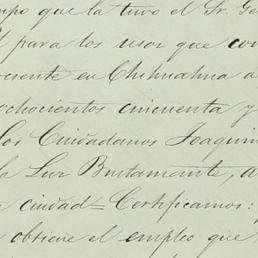 mpo que la tuvo el Sr. Ge
para los usos que con
presente en Chihuahua a
ochocientos cincuenta y
los Ciudadanos Joaquin
la Luz Bustamante, a
ciudad = Certificamos:
obtiene el empleo que